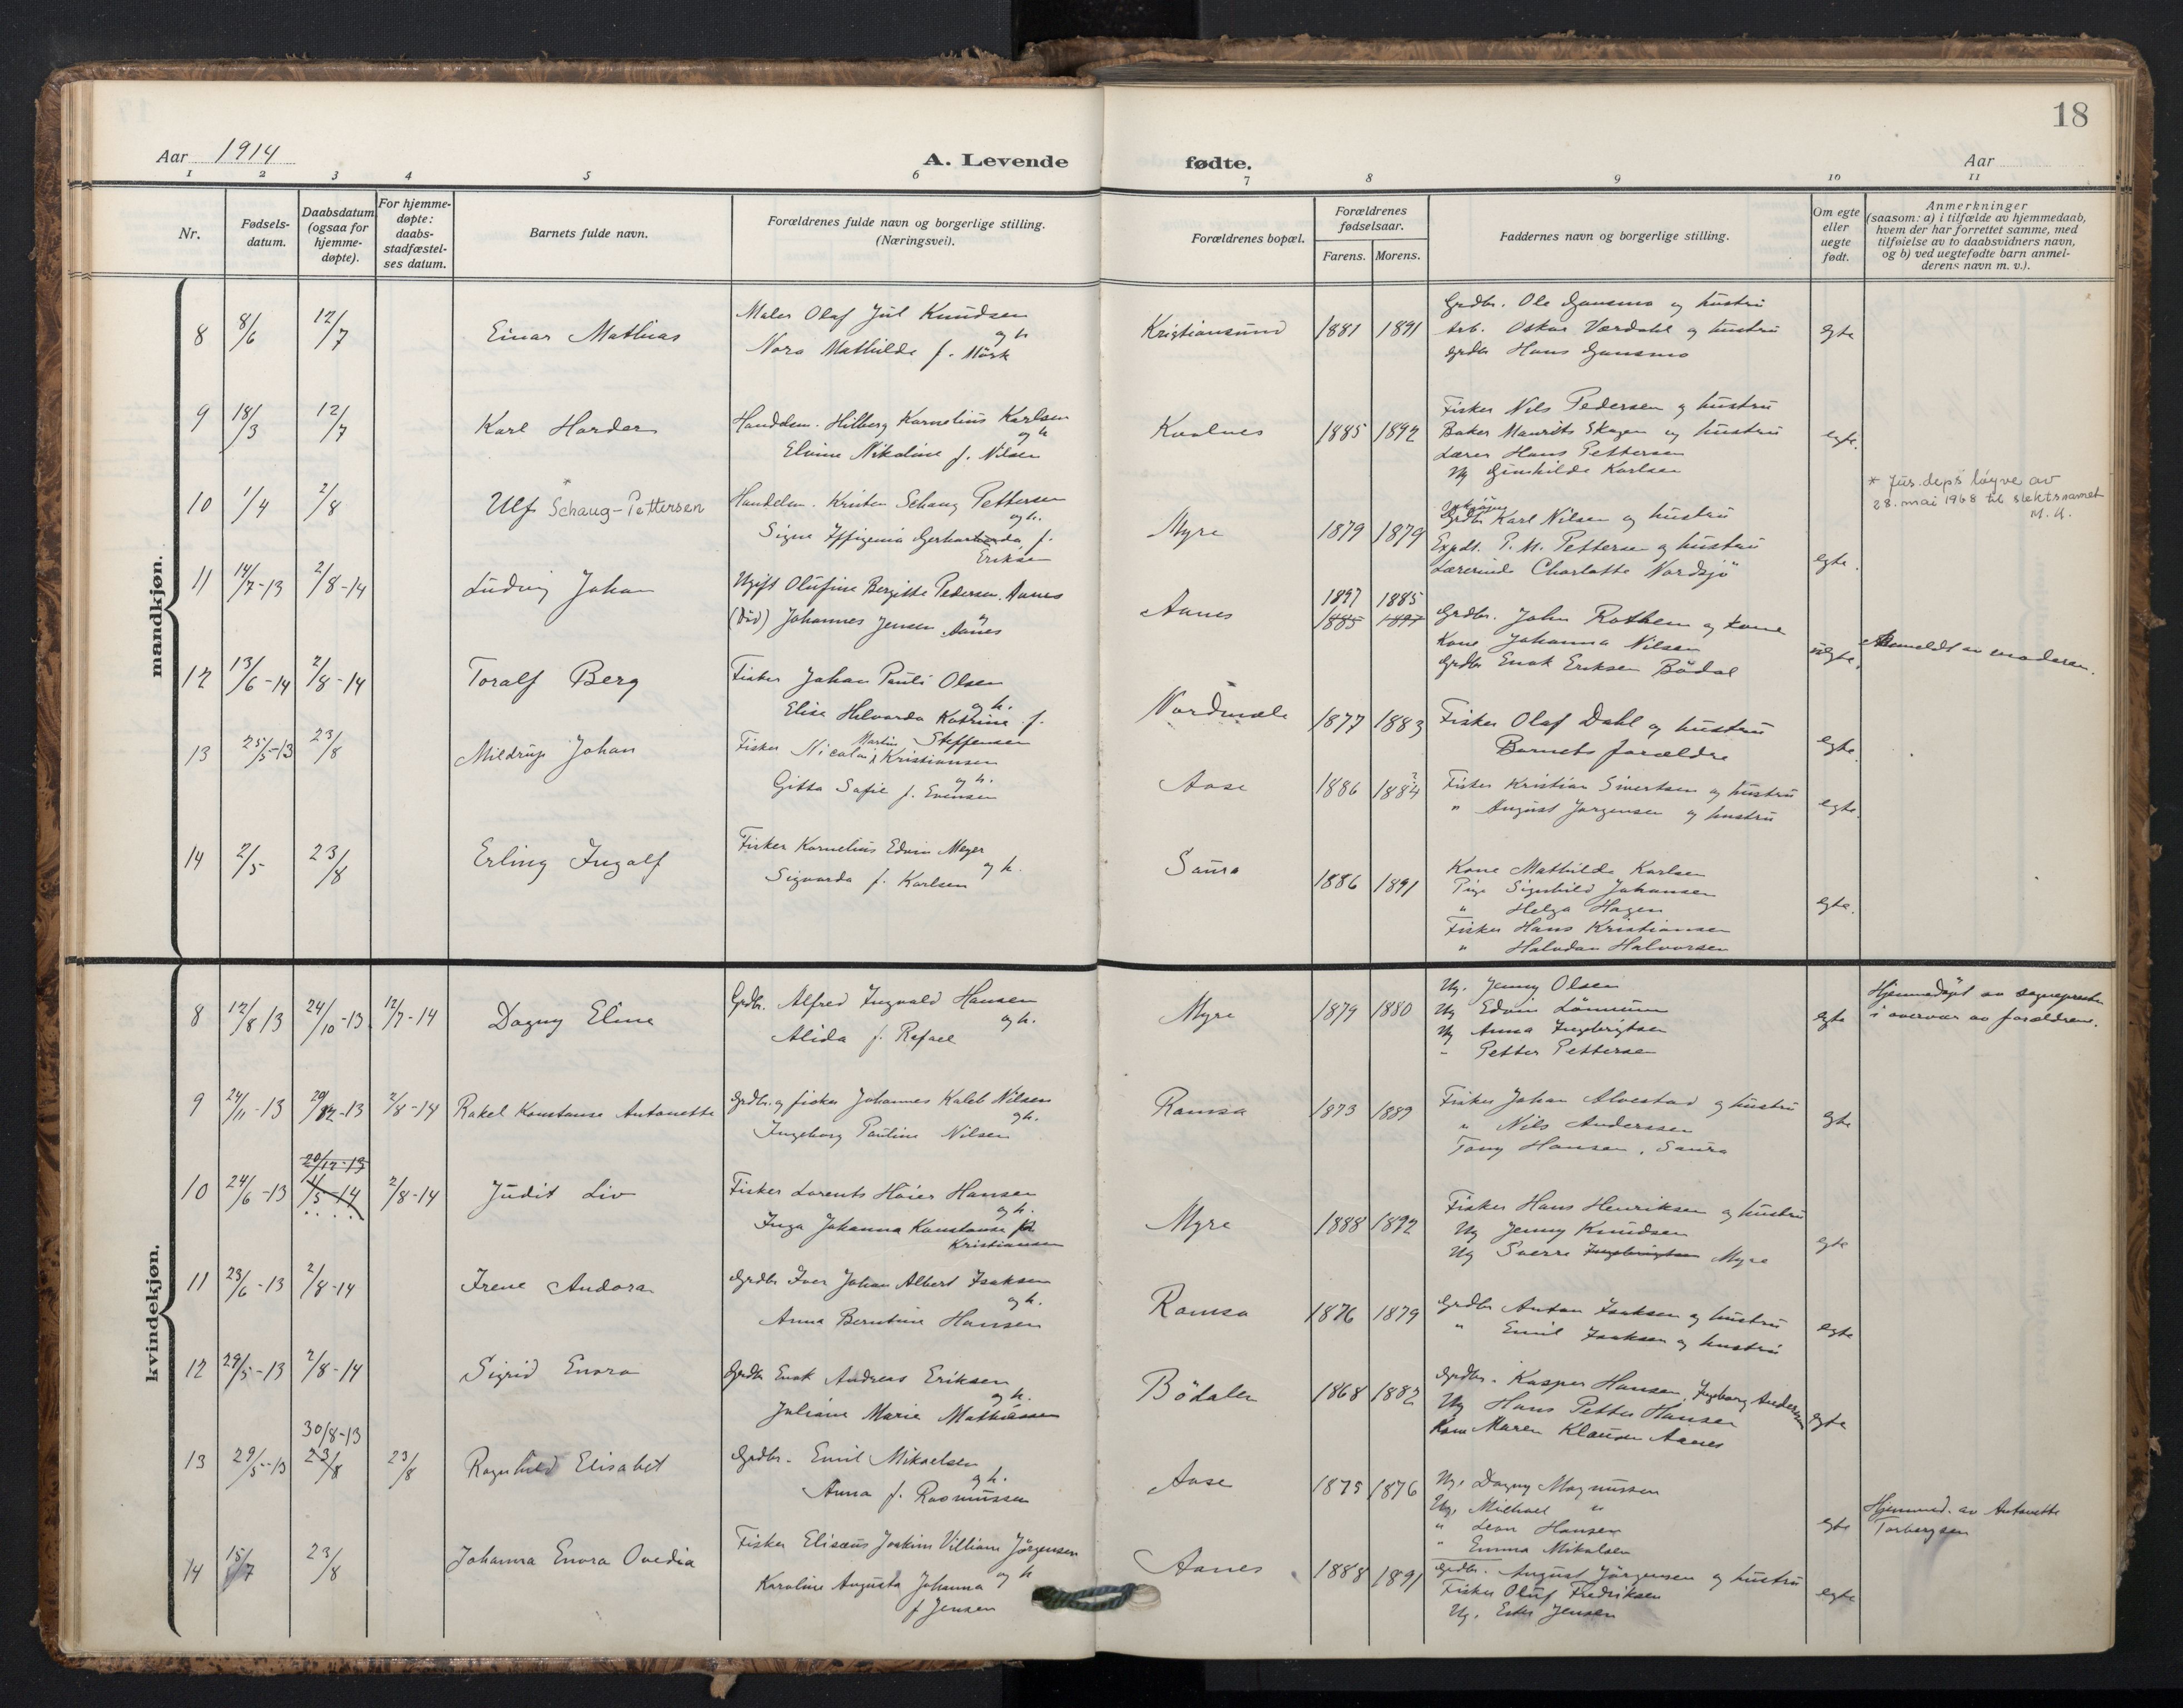 18
Aar 1914
A. Levende fødte.
Aar
1 2 3 4 5 6 7 8 9 10 11
Nr.
Fødsels-
datum.
Daabsdatum
(ogsaa for
hjemme-
døpte).
For hjemme-
døpte:
daabs-
stadfæstel-
ses datum.
Barnets fulde navn.
Forældrenes fulde navn og borgerlige stilling.
(Næringsvei).
Forældrenes bopæl.
Forældrenes
fødselsaar.
Farens. Morens.
Faddernes navn og borgerlige stilling.
Om egte
eller
uegte
født.
Anmerkninger
(saasom: a) i tilfælde av hjemmedaab,
hvem der har forrettet samme, med
tilføielse av to daabsvidners navn,
og b) ved uegtefødte barn anmel-
derens navn m. v.).
mandkjøn.
8 8/6 12/7 Einar Mathias
Maler Olaf Jul Knudsen
og h
Nora Mathilde f. Mörk
Kristiansund 1881 1891
Grdbr. Ole Gansmo og hustru
Arb. Oskar Værdahl og hustru
Grdbr Hans Gansmo
egte
9 18/3 12/7 Karl Harder
Handelsm. Hilberg Kornelius Karlsen
og h
Elvine Nikoline f. Nilsen
Kvalnes 1885 1892
Fisker Nils Pedersen og hustru
Baker Maurits Skagen og hustru
Lærer Hans Pettersen
Ug Gunhilde Karlsen
egte.
10 1/4 2/8 Ulf * Schaug-Pettersen
Handelsm. Kristen Schaug Pettersen
og h.
Signe Iffigenia Gerharda f.
Eriksen
Myre 1879 1879
Grdbr Karl Nilsen og hustru
Expdt. P. M. Pettersen og hustru
Lærerinde Charlotte Nordsjö
egte.
* Jus.deps løyve av
28. mai 1968 til slektsnamet
M. U.
11 14/7-13 2/8-14 Ludvig Johan
Ugift Olufine Bergitte Pedersen. Aanes
og
(Död) Johannes Jensen Aanes
Aanes 1897 1885
1885 1897
Grdbr. John Rothem og kone
Kone Johanna Nilsen
Grdbr Enok Eriksen Bödal
uegte.
Anmeldt av moderen.
12 13/6-14 2/8-14 Toralf Berg
Fisker Johan Pauli Olsen
og h.
Elise Helvarda Katrine f.
Steffensen
Nordmele 1877 1883
Fisker Olaf Dahl og hustru
Barnets forældre
egte.
13 25/5-13 23/8 Mildrup Johan
Fisker Nicolai Martin Kristiansen
og h.
Gitta Safie f. Evensen
Aase 1886 1884 3
Fisker Kristian Sivertsen og hustru
" August Jørgensen og hustru
egte.
14 2/5 23/8 Erling Ingolf
Fisker Kornelius Edvin Meyer
og h.
Sigvarda f. Karlsen
Saura 1886 1891
Kone Mathilde Karlsen
Pige Signhild Johansen
" Helga Hagen
Fisker Hans Kristiansen
" Halvdan Halvorsen
egte.
kvindekjøn.
8 12/8 13 24/10-13 12/7-14 Dagny Eline
Grdbr. Alfred Ingvald Hansen
og h.
Alida f. Rafael
Myre 1879 1880
Ug. Jenny Olsen
Ug Edvin Lönnum
Ug Anna Ingebrigtsen
" Petter Pettersen
egte
Hjemmedöpt av sogneprest
i overvær av forældrene.
9 24/11-13 29/12-13 2/8-14 Rakel Konstanse Antonette
Grdbr. og fisker Johannes Kaleb Nilsen
og h.
Ingeborg Pauline Nilsen
Ramsa 1873 1889
Fisker Johan Alvestad og hustru
" Nils Anderssen
Tony Hansen, Saura
egte
10 24/6-13 20/12-13 11/5-14 2/8-14 Judit Liv
Fisker Lorents Höier Hansen
og h.
Inga Johanna Konstanse f
Kristiansen
Myre 1888 1892
Fisker Hans Henriksen og hustru
Ug Jenny Knudsen
Ug Sverre Ingebrigtsen Myre
egte
11 23/6-13 2/8-14 Irene Andora
Grdbr Iver Johan Albert Isaksen
og h.
Anna Berntine Hansen
Ramsa 1876 1879
Grdbr Anton Isaksen og hustru
" Emil Isaksen og hustru
egte
12 29/5-13 2/8-14 Sigrid Enora
Grdbr Enok Andreas Eriksen
og h.
Juliane Marie Mathiassen
Bödalen 1868 1882
Grdbr. Kasper Hansen, Ingeborg Andersen
Ug Hans Petter Hansen
Kone Maren Klausen Aanes
egte
13 29/5-13 30/8-13 23/8 23/8 Ragnhild Elisabet
Grdbr. Emil Mikaelsen
og h.
Anna f. Rasmussen
Aase 1875 1876
Ug. Dagny Magnussen
Ug. Michael "
" Leon Hansen
" Emma Mikalsen
egte
Hjemmed. av Antonette
Torbergsen
14 15/7 23/8 Johanna Enora Ovedia
Fisker Elisæus Joakim Villiam Jörgensen
og h
Karoline Augusta Johanna
f Jensen
Aanes 1888 1891
Grdbr. August Jörgensen og hustru
Fisker Oluf Fredriksen
Ug. Ester Jensen
egte